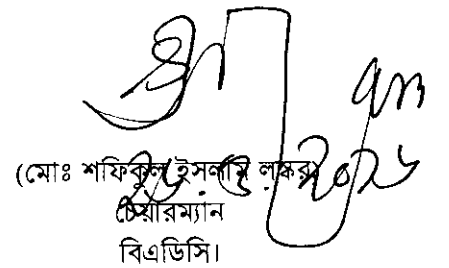 (মোঃ শফিকুল ইসলাম লস্কর)
চেয়ারম্যান
বিএডিসি।